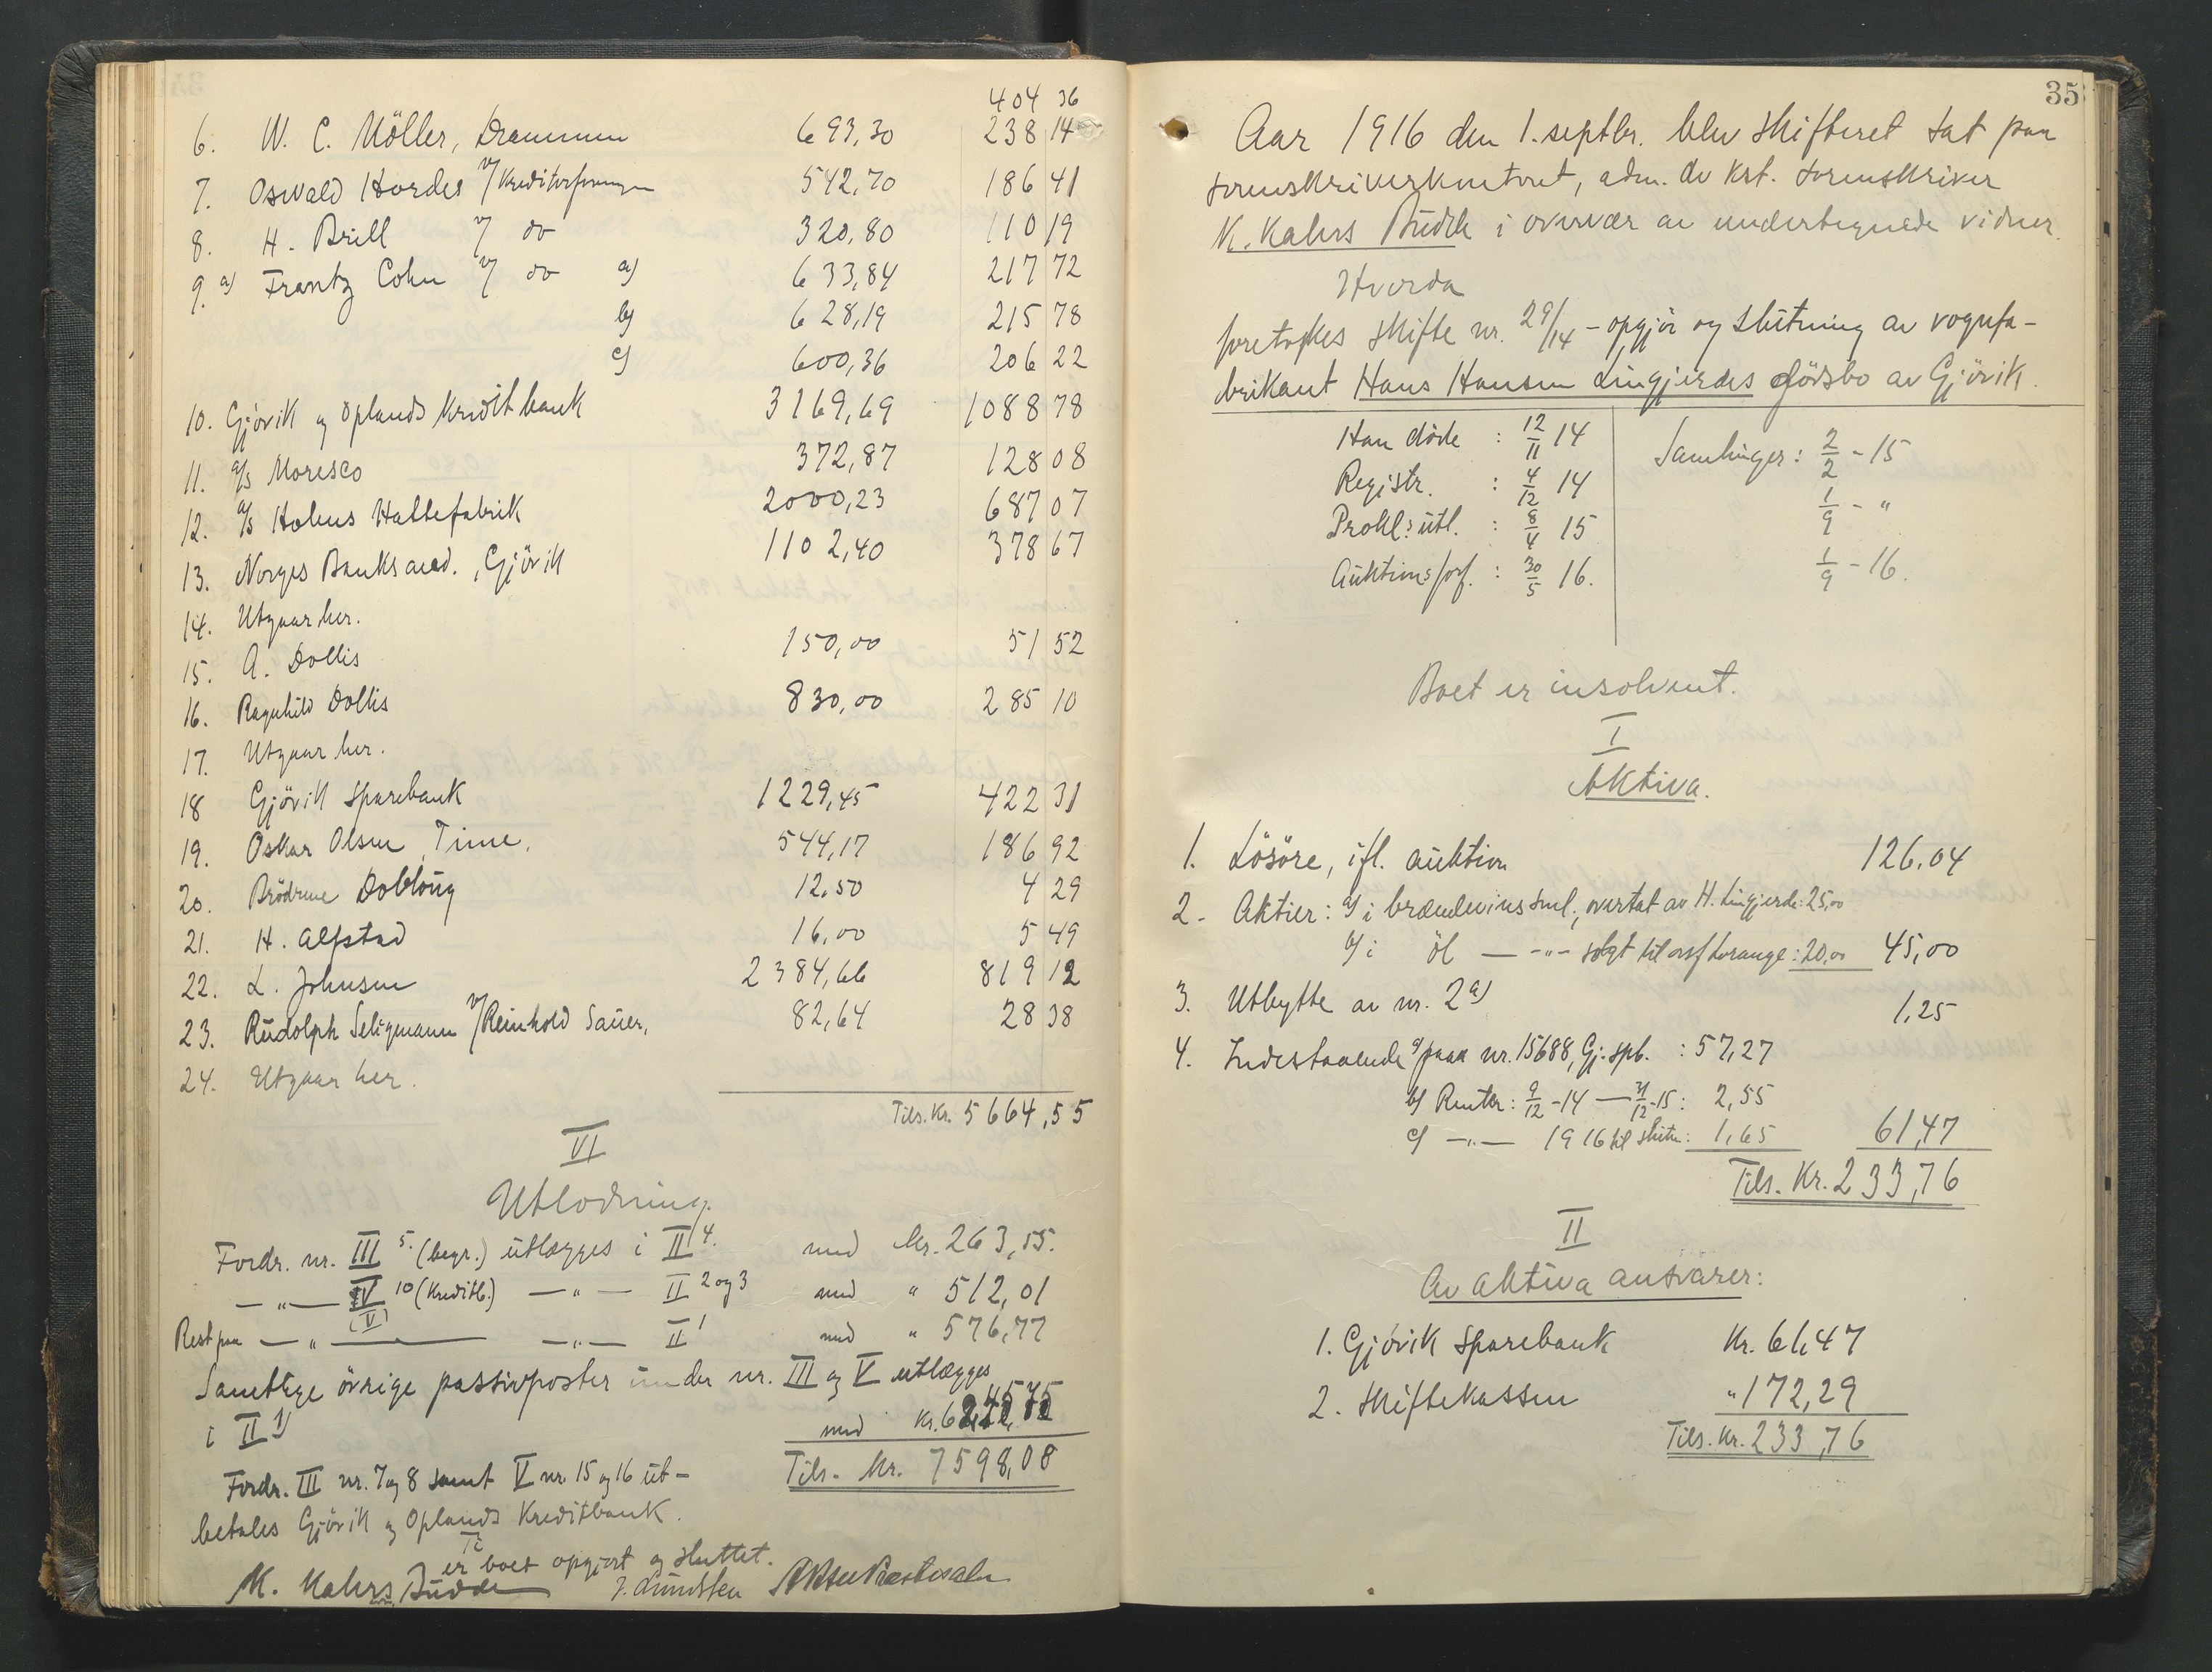 404 36
6. W. C. Möller, Drammen 693,30 238 14
7. Oswald Hordes v/ Kreditorforeningen 542,70 186 41
8. H. Brill v/ do 320,80 110 19
9. a) Frantz Cohn v/ do a) 633,84 217 72
b) 628,19 215 78
c) 600,36 206 22
10. Gjövik og Oplands Kreditbank 3169,69 1088 78
11. A/s Moresco 372,87 128 08
12. A/s Holms Hattefabrik 2000,23 687 07
13. Norges Banks avd., Gjövik 1102,40 378 67
14. Utgaar her.
15. A. Dollis 150,00 51 52
16. Ragnhild Dollis 830,00 285 10
17. Utgaar her.
18 Gjövik Sparebank 1229,45 422 31
19. Oskar Olsen, Time, 544,17 186 92
20. Brödrene Dobloug 12,50 4 29
21. H. Alfstad 16,00 5 49
22. L. Johnsen 2384,66 819 12
23. Rudolph Seligmann v/ Reinhold Sauer, 82,64 28 38
24. Utgaar her.
Tils. Kr. 5664,55
VI
Utlodning.
Fordr. nr. III 5. (begr.) utlægges i II 4. med kr. 263,55.
— " — IV 10 (Kreditb.) — " — II 2 og 3 med " 512,01
(V)
Rest paa — " — — " — II 1 med " 576,77
Samtlige övrige passivposter under nr. III og V utlægges
i II 1) med Kr. 6245,75
Tils. Kr. 7598,08
Fordr. III nr. 7 og 8 samt V nr. 15 og 16 ut-
betales Gjövik og Oplands Kreditbank.
er boet opgjort og sluttet.
K. Kahrs Budde J. Lundsten
35
Aar 1916 den 1. septbr. blev skifteret sat paa
sorenskriverkontoret, adm. av kst. sorenskriver
K. Kahrs Budde i overvær av undertegnede vidner.
Hvorda
foretokes skifte nr. 29/14 - opgjör og slutning av vognfa-
brikant Hans Hansen Lingjerdes dödsbo av Gjövik.
Han döde : 12/11 14 Samlinger: 2/2 - 15
Registr. : 4/12 14 1/9 - "
Prokl: utl. : 8/4 15
Auktionsforf. : 30/5 16. 1/9 - 16.
Boet er insolvent.
I
Aktiva.
1. Lösöre, ifl. auktion 126,04
2. Aktier: a) i brændevinssml., overtat av H. Lingjerde: 25,00
b) i öl — " — solgt til orf Lorange: 20,00 45,00
3. Utbytte av nr. 2 a) 1,25
4. Indestaaende a) paa nr. 15688, Gj. spb. : 57,27
b) Renter: 9/12 - 14 — 31/12 - 15: 2,55
c) — " — 1916 til slutn: 1,65 61,47
Tils. Kr. 233,76
II
Av aktiva ansvarer:
1. Gjövik Sparebank Kr. 61,47
2. Skiftekassen " 172,29
Tils. Kr. 233,76